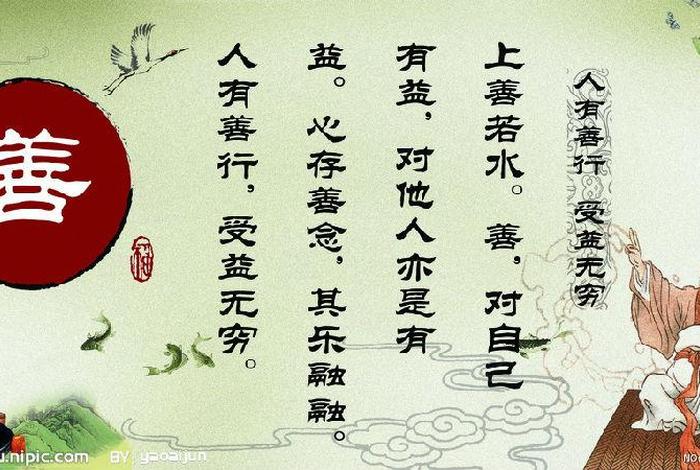 人有善行 受益无穷
上善若水。善，对自己
有益，对他人亦是有
益。心存善念，其乐融融。
人有善行，受益无穷。
善
u.nipic.com BY: yaoaijun
NO